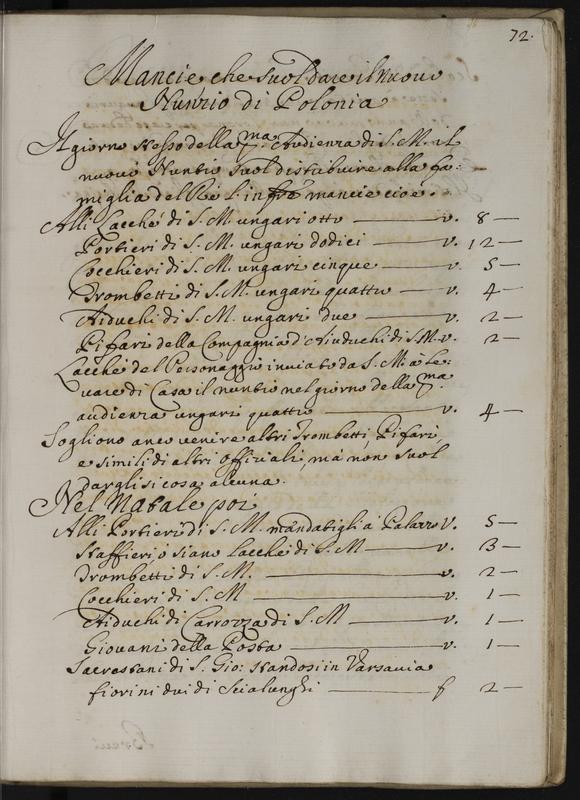 72.
Mancie che suol dare il nuovo
Nunzio di Polonia
Il giorno stesso della p.ma Audienza di S. M. il
nuovo Nuntio suol distribuire alla fa:
miglia del Ré l'inf.te mancie cioé.
Alli Lacché di S. M. ungari otto v. 8
Portieri di S. M. ungari dodici v. 12
Cocchieri di S. M. ungari cinque v. 5
Trombetti di S. M. ungari quattro v. 4
Aiduchi di S. M. ungari due v. 2
Pifari della Compagnia d'Aiuduchi di S. M. v. 2
Lacché del Personaggio inviato da S. M. à Le:
vare di Casa il nuntio nel giorno della p.ma
audienza ungari quattro v. 4
Sogliono anco venire altri Trombetti, Pifari,
e simili di altri offitiali, mà non suol
darglisi cosa alcuna.
Nel Natale poi
Alli Portieri di S. M. mandatigli á Palazzo v. 5
Staffieri ó siano Lacché di S. M v. 3
Trombetti di S. M. v. 2
Cocchieri di S. M v. 1
Aiduchi di Carrozza di S. M v. 1
Giovani della Posta v. 1
Sacrestani di S. Gio: standosi in Varsavia
fiorini dui di Scialunghi f 2